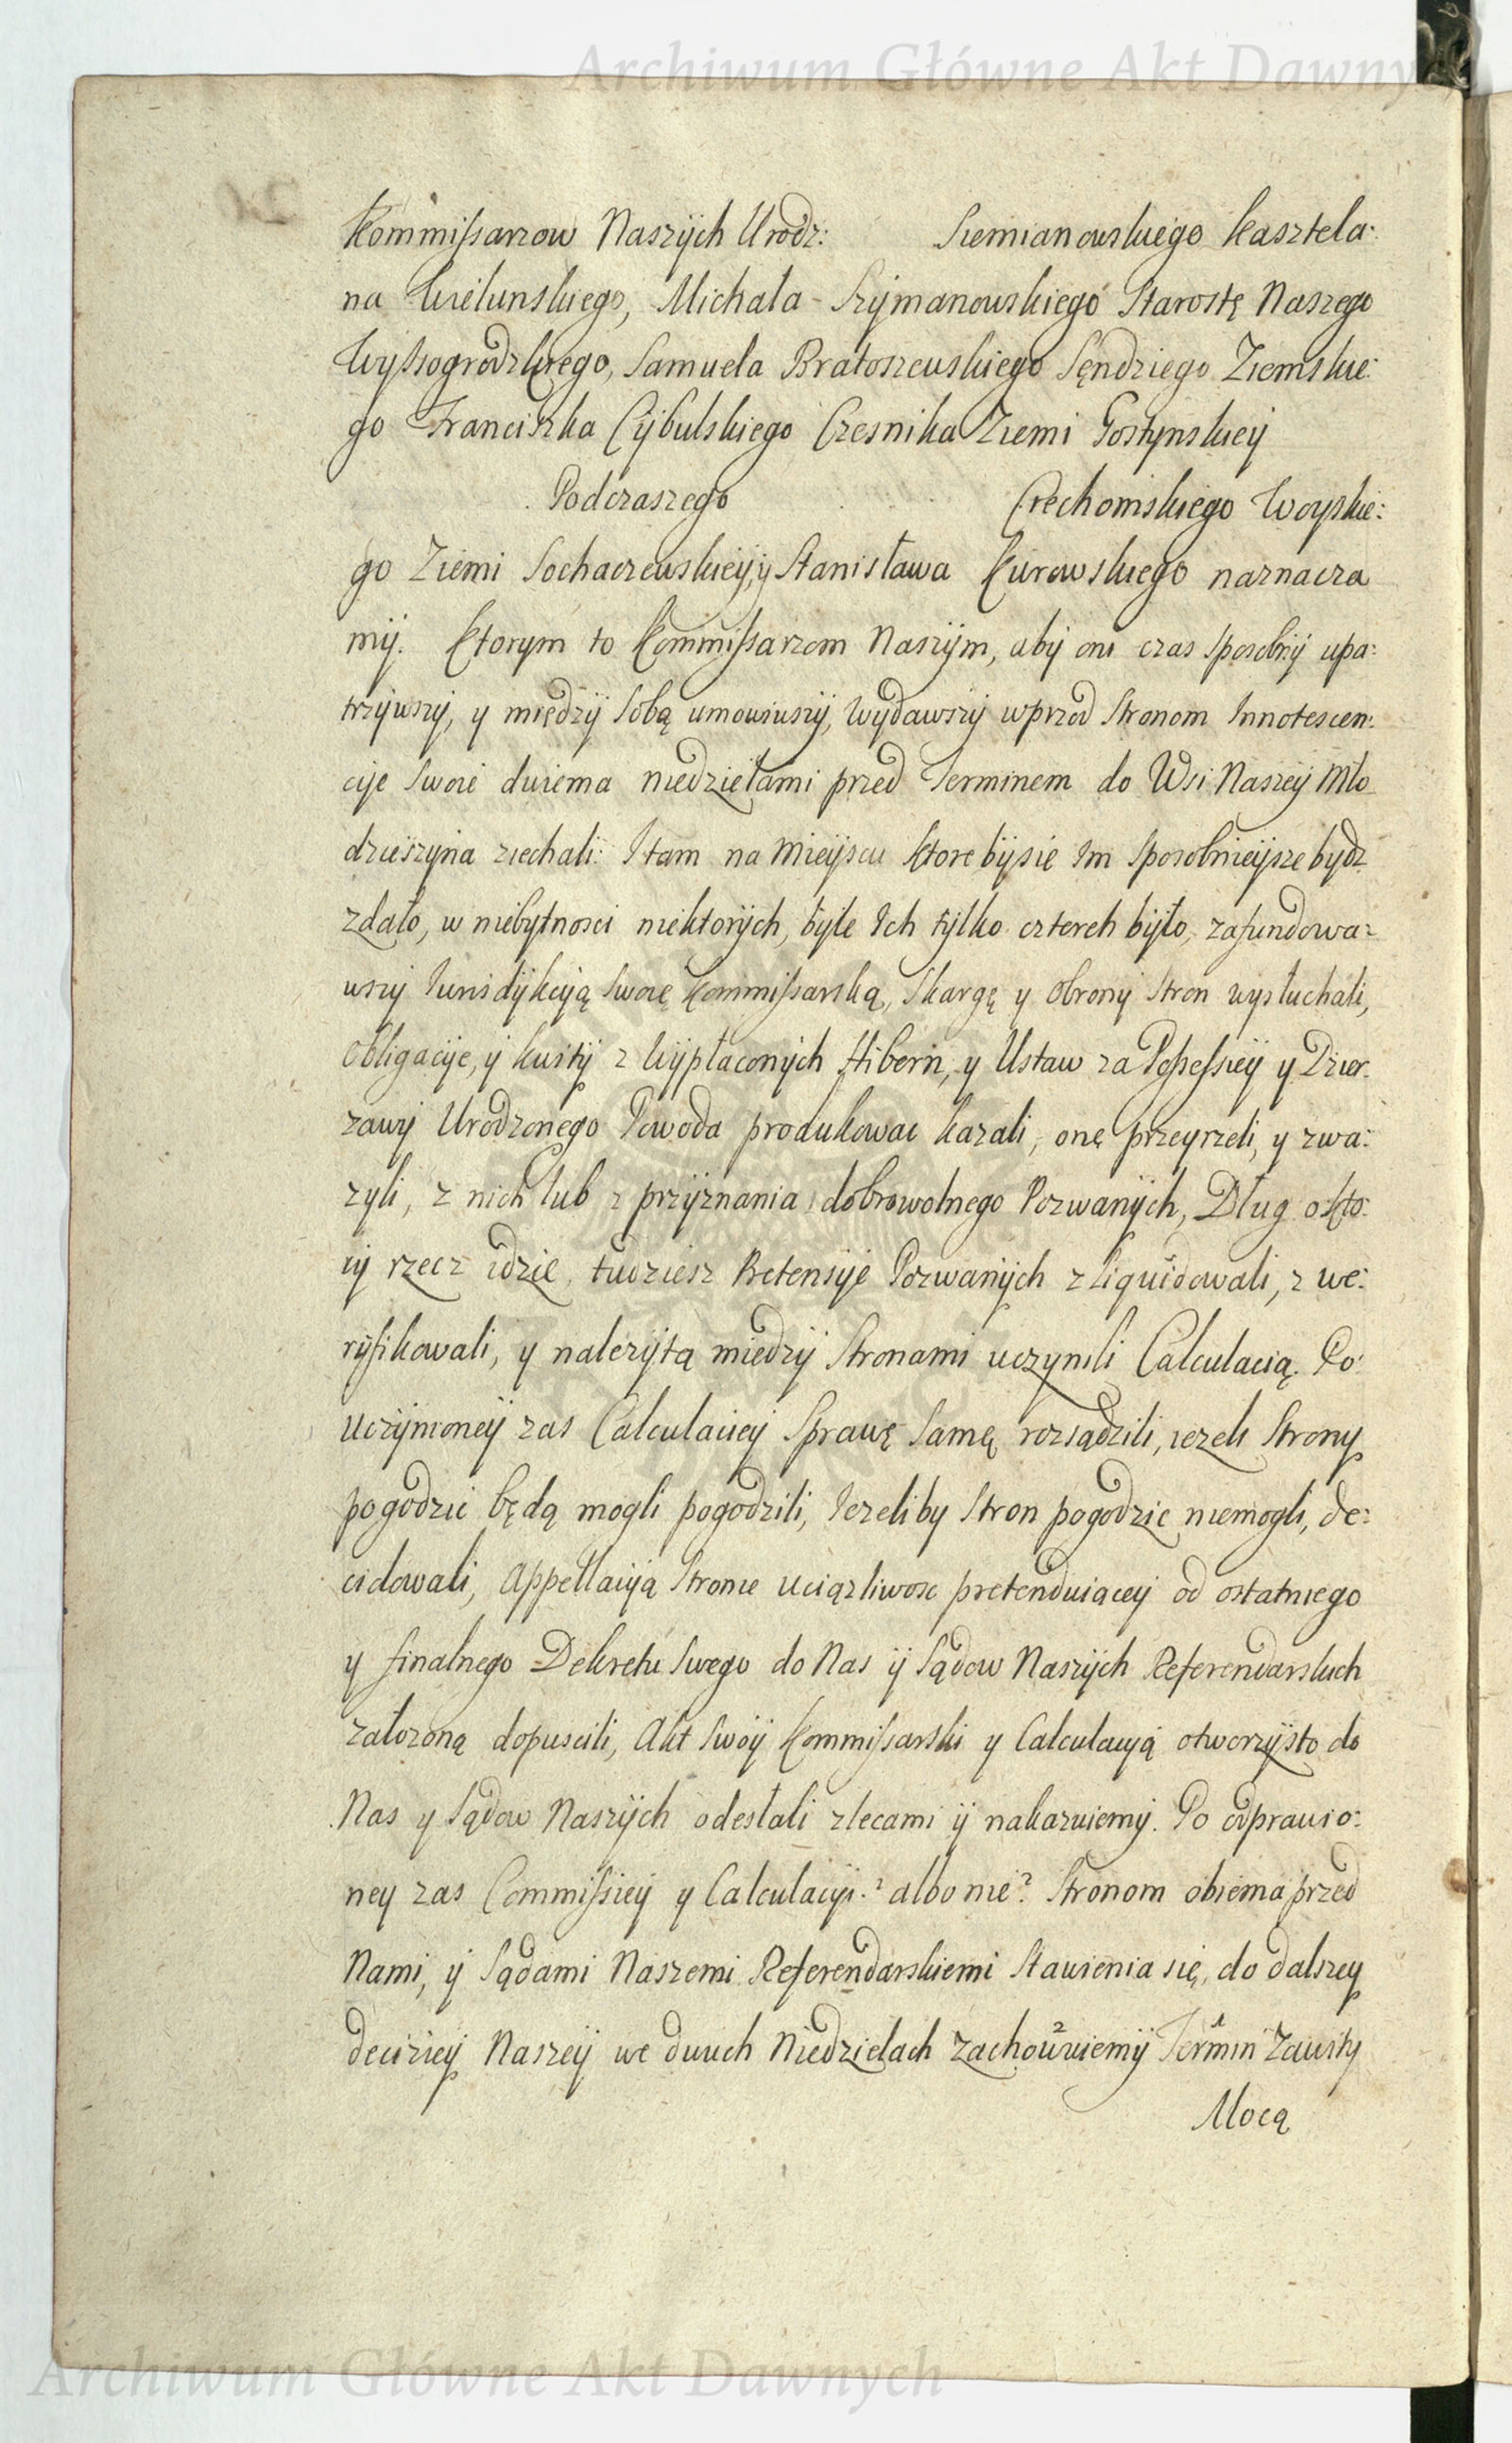 Archiwum Główne Akt Dawnych
Kommissarzow Naszÿch Urodz: Siemianowskiego Kasztela:
na Wielunskiego, Michała Szÿmanowskiego Starostę Naszego
Wyssogrodzkiego, Samuela Bratoszewskiego Sęndziego Ziemskie:
go Franciszka Cÿbulskiego Czesnika Ziemi Gostynskieÿ
Podczaszego Czechomskiego Woyskie:
go Ziemi Sochaczewskieÿ, ÿ Stanisława Kurowskiego naznacza
mÿ. Ktorym to Kommissarzom Naszÿm, abÿ oni czas sposobnÿ upa:
trzÿwszÿ, y międzÿ sobą umowiwszÿ, Wÿdawszÿ wprzod Stronom Innotescen:
cÿe Swoie dwiema niedzielami przed Terminem do Wsi Naszeÿ Mło
dzieszyna ziechali: I tam na Mieÿscu ktore bÿ się Im sposobnieÿsze bydz
zdało, w niebytnosci niektorÿch, bÿle Ich tÿlko cztereh bÿło, zafundowa:
wszÿ Iurisdÿkcÿą Swoię Kommissarską, Skargę y Obronÿ Stron wysłuchali,
Obligacÿe, ÿ kwitÿ z Wÿpłaconÿch Hibern, y Ustaw za Possessÿeÿ y Dzier:
zawÿ Urodzonego Powoda produkowac kazali, onę przeyrzeli, y zwa:
zyli, z nich lub z przÿznania dobrowolnego Pozwanÿch, Dług o kto:
rÿ rzecz idzie, tudziesz Pretensÿe Pozwanÿch zliquidowali, z we:
rÿfikowali, y nalezÿtą miedzÿ Stronami uczynili Calculacią. Po
Uczÿnioneÿ zas Calculacieÿ Sprawę Samę rozsądzili, iezeli Strony
pogodzic będą mogli pogodzili, Iezeliby Stron pogodzic niemogli, de:
cidowali, Appellacÿą Stronie uciązliwosc pretenduiąceÿ od ostatniego
y finalnego Dekretu Swego do Nas ÿ Sądow Naszÿch Referendarskich
załozoną dopuscili, Akt Swoÿ Kommissarski y Calculacÿą otworzÿsto do
Nas y Sądow Naszÿch odesłali zlecami ÿ nakazuiemÿ. Po odprawio:
ney zas Commissieÿ y Calculacÿi.? albo nie? Stronom obiema przed
Nami, ÿ Sądami Naszemi Referendarskiemi Stawienia się, do dalszey
deciziey Naszeÿ we dwuch Niedzielach Zachowuiemÿ Termin Zawity
Mocą
Archiwum Główne Akt Dawnych